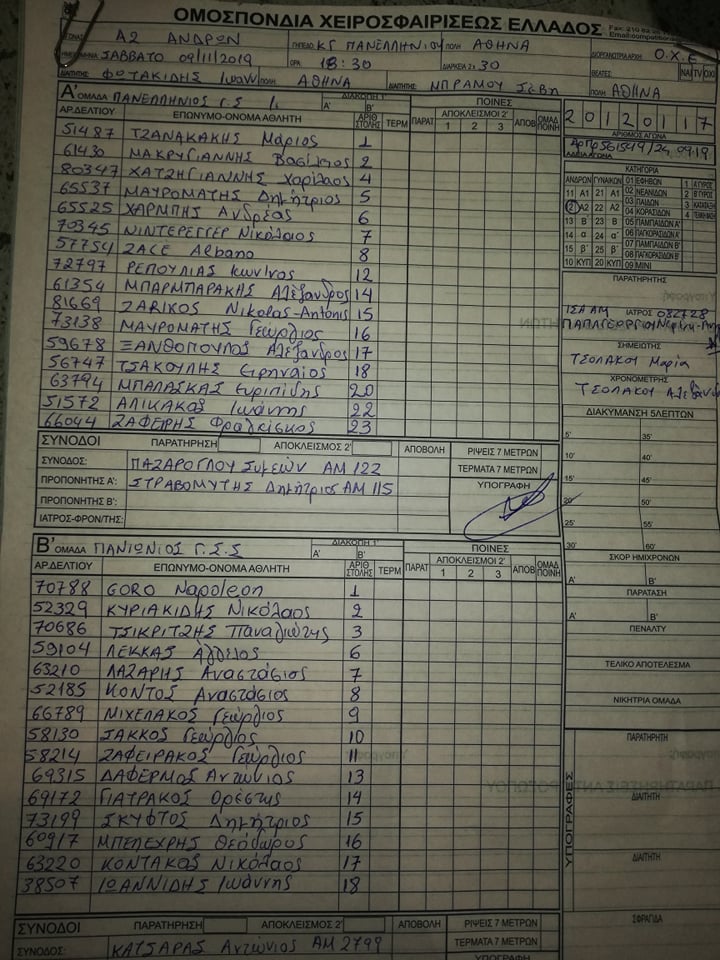 ΟΜΟΣΠΟΝΔΙΑ ΧΕΙΡΟΣΦΑΙΡΙΣΕΩΣ ΕΛΛΑΔΟΣ
Α2 ΑΝΔΡΩΝ ΓΗΠΕΔΟ ΚΓ ΠΑΝΕΛΛΗΝΙΟΥ ΠΟΛΗ ΑΘΗΝΑ ΔΙΟΡΓΑΝΩΤΡΙΑ ΑΡΧΗ: Ο.Χ.Ε
ΣΑΒΒΑΤΟ 09/11/2019 ΩΡΑ 18:30 ΔΙΑΡΚΕΙΑ 2x30
ΔΙΑΙΤΗΤΗΣ ΦΩΤΑΚΙΔΗΣ Ιωαν ΠΟΛΗ: ΑΘΗΝΑ ΔΙΑΙΤΗΤΗΣ: ΜΠΡΑΜΟΥ ΠΟΛΗ: ΑΘΗΝΑ
Α' ΟΜΑΔΑ ΠΑΝΕΛΛΗΝΙΟΣ Γ.Σ ΔΙΑΚΟΠΗ 1' Α' Β' ΠΟΙΝΕΣ
ΑΡ.ΔΕΛΤΙΟΥ ΕΠΩΝΥΜΟ-ΟΝΟΜΑ ΑΘΛΗΤΗ ΑΡΙΘ ΣΤΟΛΗΣ ΤΕΡΜ ΠΑΡΑΤ ΑΠΟΚΛΕΙΣΜΟΙ 2' 1 2 3 ΑΠΟΒ ΟΜΑΔ ΠΟΙΝΗ
51487 ΤΖΑΝΑΚΑΚΗΣ Μάριος 1
61430 ΜΑΚΡΥΓΙΑΝΝΗΣ Βασίλειος 2
80347 ΧΑΤΖΗΓΙΑΝΝΗΣ Χαρίλαος 4
65537 ΜΑΥΡΟΜΑΤΗΣ Δημήτριος 5
65525 ΧΑΡΜΠΗΣ Ανδρέας 6
70345 ΝΙΝΤΕΡΕΓΓΕΡ Νικόλαος 7
57754 ZACE Albano 8
72797 ΡΕΠΟΥΛΙΑΣ Κων/νος 12
61354 ΜΠΑΡΜΠΑΡΑΚΗΣ Αλέξανδρος 14
81669 ZARIKOS Nikolas-Antonis 15
73138 ΜΑΥΡΟΜΑΤΗΣ Γεώργιος 16
59678 ΞΑΝΘΟΠΟΥΛΟΣ Αλέξανδρος 17
56747 ΤΣΑΚΟΥΛΗΣ Ειρηναίος 18
63794 ΜΠΑΛΑΣΚΑΣ Ευριπίδης 20
51572 ΑΛΙΚΑΚΟΣ Ιωάννης 22
66044 ΖΑΦΕΙΡΗΣ Φραγκίσκος 23
ΣΥΝΟΔΟΙ ΠΑΡΑΤΗΡΗΣΗ ΑΠΟΚΛΕΙΣΜΟΣ 2' ΑΠΟΒΟΛΗ ΡΙΨΕΙΣ 7 ΜΕΤΡΩΝ
ΣΥΝΟΔΟΣ: ΠΑΖΑΡΟΓΛΟΥ Συμεών ΑΜ 122 ΤΕΡΜΑΤΑ 7 ΜΕΤΡΩΝ
ΠΡΟΠΟΝΗΤΗΣ Α': ΣΤΡΑΒΟΜΥΤΗΣ Δημήτριος ΑΜ 115 ΥΠΟΓΡΑΦΗ
ΠΡΟΠΟΝΗΤΗΣ Β':
ΙΑΤΡΟΣ-ΦΡΟΝ/ΤΗΣ:
Β' ΟΜΑΔΑ ΠΑΝΙΩΝΙΟΣ Γ.Σ.Σ ΔΙΑΚΟΠΗ 1' Α' Β' ΠΟΙΝΕΣ
ΑΡ.ΔΕΛΤΙΟΥ ΕΠΩΝΥΜΟ-ΟΝΟΜΑ ΑΘΛΗΤΗ ΑΡΙΘ ΣΤΟΛΗΣ ΤΕΡΜ ΠΑΡΑΤ ΑΠΟΚΛΕΙΣΜΟΙ 2' 1 2 3 ΑΠΟΒ ΟΜΑΔ ΠΟΙΝΗ
70788 GORO Napoleon 1
52329 ΚΥΡΙΑΚΙΔΗΣ Νικόλαος 2
70686 ΤΣΙΚΡΙΤΖΗΣ Παναγιώτης 3
59104 ΛΕΚΚΑΣ Άγγελος 6
63210 ΛΑΖΑΡΗΣ Αναστάσιος 7
52185 ΚΟΝΤΟΣ Αναστάσιος 8
66789 ΜΙΧΕΛΑΚΟΣ Γεώργιος 9
58130 ΣΑΚΚΟΣ Γεώργιος 10
58214 ΖΑΦΕΙΡΑΚΟΣ Γεώργιος 11
69315 ΔΑΦΕΡΜΟΣ Αντώνιος 13
69172 ΓΙΑΤΡΑΚΟΣ Ορέστης 14
73199 ΣΚΥΦΤΟΣ Δημήτριος 15
60917 ΜΠΕΛΕΧΡΗΣ Θεόδωρος 16
63220 ΚΟΝΤΑΚΟΣ Νικόλαος 17
38507 ΙΩΑΝΝΙΔΗΣ Ιωάννης 18
ΣΥΝΟΔΟΙ ΠΑΡΑΤΗΡΗΣΗ ΑΠΟΚΛΕΙΣΜΟΣ 2' ΑΠΟΒΟΛΗ ΡΙΨΕΙΣ 7 ΜΕΤΡΩΝ
ΣΥΝΟΔΟΣ: ΚΑΤΣΑΡΑΣ Αντώνιος ΑΜ 2799 ΤΕΡΜΑΤΑ 7 ΜΕΤΡΩΝ
2012017
ΑΡΙΘΜΟΣ ΑΓΩΝΑ
ΚΑΤΗΓΟΡΙΑ
ΑΝΔΡΩΝ ΓΥΝΑΙΚΩΝ 01 ΕΦΗΒΩΝ 1 Α'ΓΥΡΟΣ
11 Α1 21 Α1 02 ΝΕΑΝΙΔΩΝ 2 Β'ΓΥΡΟΣ
21 Α2 22 Α2 03 ΠΑΙΔΩΝ 3
04 ΚΟΡΑΣΙΔΩΝ 4
13 Β 23 Β 05 ΠΑΜΠΑΙΔΩΝ Α'
14 α 24 α 06 ΠΑΓΚΟΡΑΣΙΔΩΝ Α'
07 ΠΑΜΠΑΙΔΩΝ Β'
15 β 25 β 08 ΠΑΓΚΟΡΑΣΙΔΩΝ Β'
10 ΚΥΠ 20 ΚΥΠ 09 ΜΙΝΙ
ΠΑΡΑΤΗΡΗΤΗΣ
ΙΣΑ ΑΜ ΙΑΤΡΟΣ 082728
ΣΗΜΕΙΩΤΗΣ
ΤΣΟΛΑΚΟΥ Μαρία
ΧΡΟΝΟΜΕΤΡΗΣ
ΤΣΟΛΑΚΟΥ
ΔΙΑΚΥΜΑΝΣΗ 5ΛΕΠΤΩΝ
5' 35'
10' 40'
15' 45'
20' 50'
25' 55'
30' 60'
ΣΚΟΡ ΗΜΙΧΡΟΝΩΝ
Α' Β'
ΠΑΡΑΤΑΣΗ
Α' Β'
ΠΕΝΑΛΤΥ
ΤΕΛΙΚΟ ΑΠΟΤΕΛΕΣΜΑ
ΝΙΚΗΤΡΙΑ ΟΜΑΔΑ
ΥΠΟΓΡΑΦΕΣ
ΠΑΡΑΤΗΡΗΤΗ
ΔΙΑΙΤΗΤΗ
ΔΙΑΙΤΗΤΗ
ΣΦΡΑΓΙΔΑ